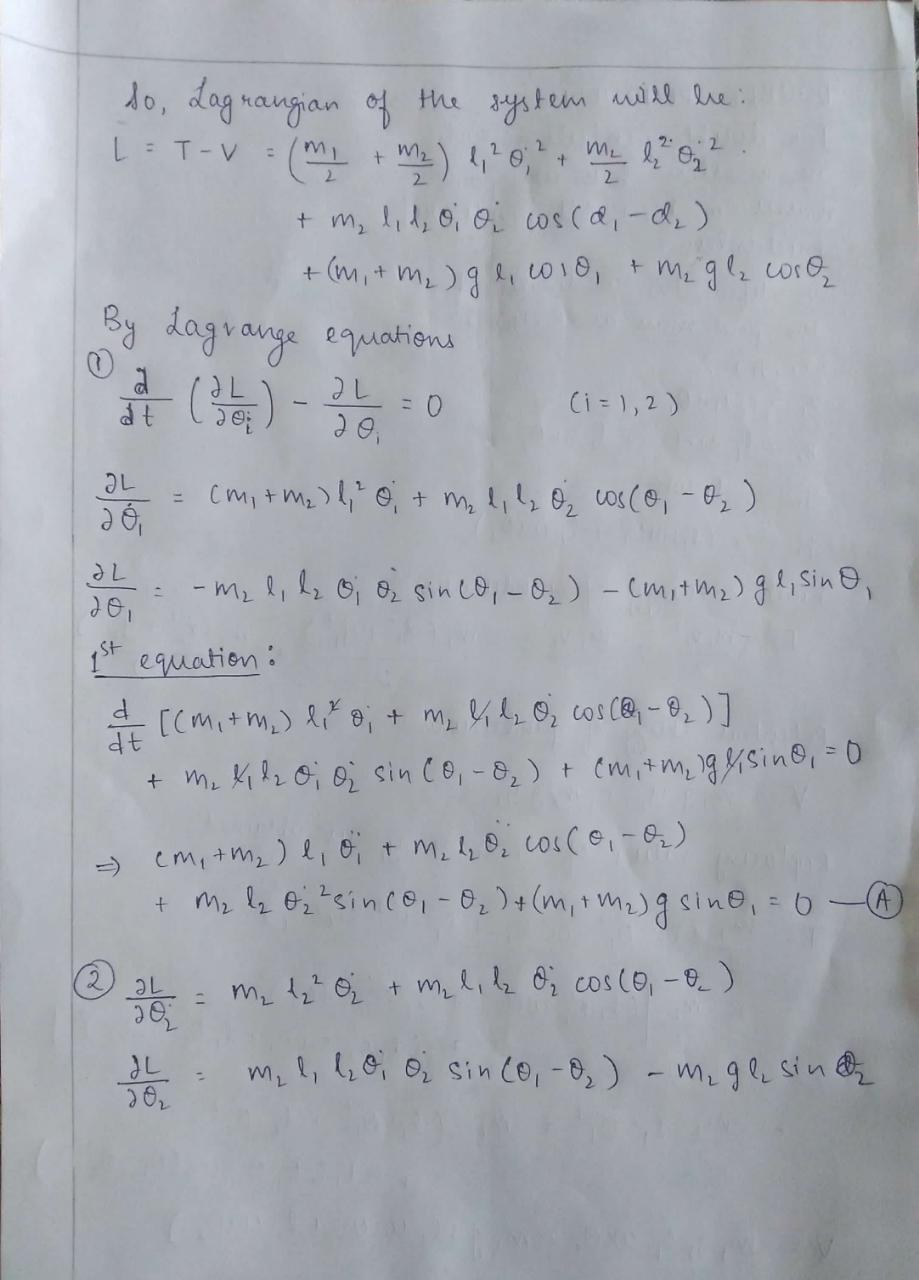 So, Lagrangian of the system will be:
L = T - V = (m₁/2 + m₂/2) l₁² θ̇₁² + m₂/2 l₂² θ̇₂²
+ m₂ l₁ l₂ θ̇₁ θ̇₂ cos(α₁ - α₂)
+ (m₁ + m₂) g l₁ cosθ₁ + m₂ g l₂ cosθ₂
By Lagrange equations
① d/dt (∂L/∂θ̇ᵢ) - ∂L/∂θᵢ = 0 (i = 1, 2)
∂L/∂θ̇₁ = (m₁ + m₂) l₁² θ̇₁ + m₂ l₁ l₂ θ̇₂ cos(θ₁ - θ₂)
∂L/∂θ₁ = - m₂ l₁ l₂ θ̇₁ θ̇₂ sin(θ₁ - θ₂) - (m₁ + m₂) g l₁ sinθ₁
1st equation:
d/dt [(m₁ + m₂) l₁² θ̇₁ + m₂ l₁ l₂ θ̇₂ cos(θ₁ - θ₂)]
+ m₂ l₁ l₂ θ̇₁ θ̇₂ sin(θ₁ - θ₂) + (m₁ + m₂) g l₁ sinθ₁ = 0
⇒ (m₁ + m₂) l₁ θ̈₁ + m₂ l₂ θ̈₂ cos(θ₁ - θ₂)
+ m₂ l₂ θ̇₂² sin(θ₁ - θ₂) + (m₁ + m₂) g sinθ₁ = 0 — Ⓐ
② ∂L/∂θ̇₂ = m₂ l₂² θ̇₂ + m₂ l₁ l₂ θ̇₂ cos(θ₁ - θ₂)
∂L/∂θ₂ = m₂ l₁ l₂ θ̇₁ θ̇₂ sin(θ₁ - θ₂) - m₂ g l₂ sin θ₂